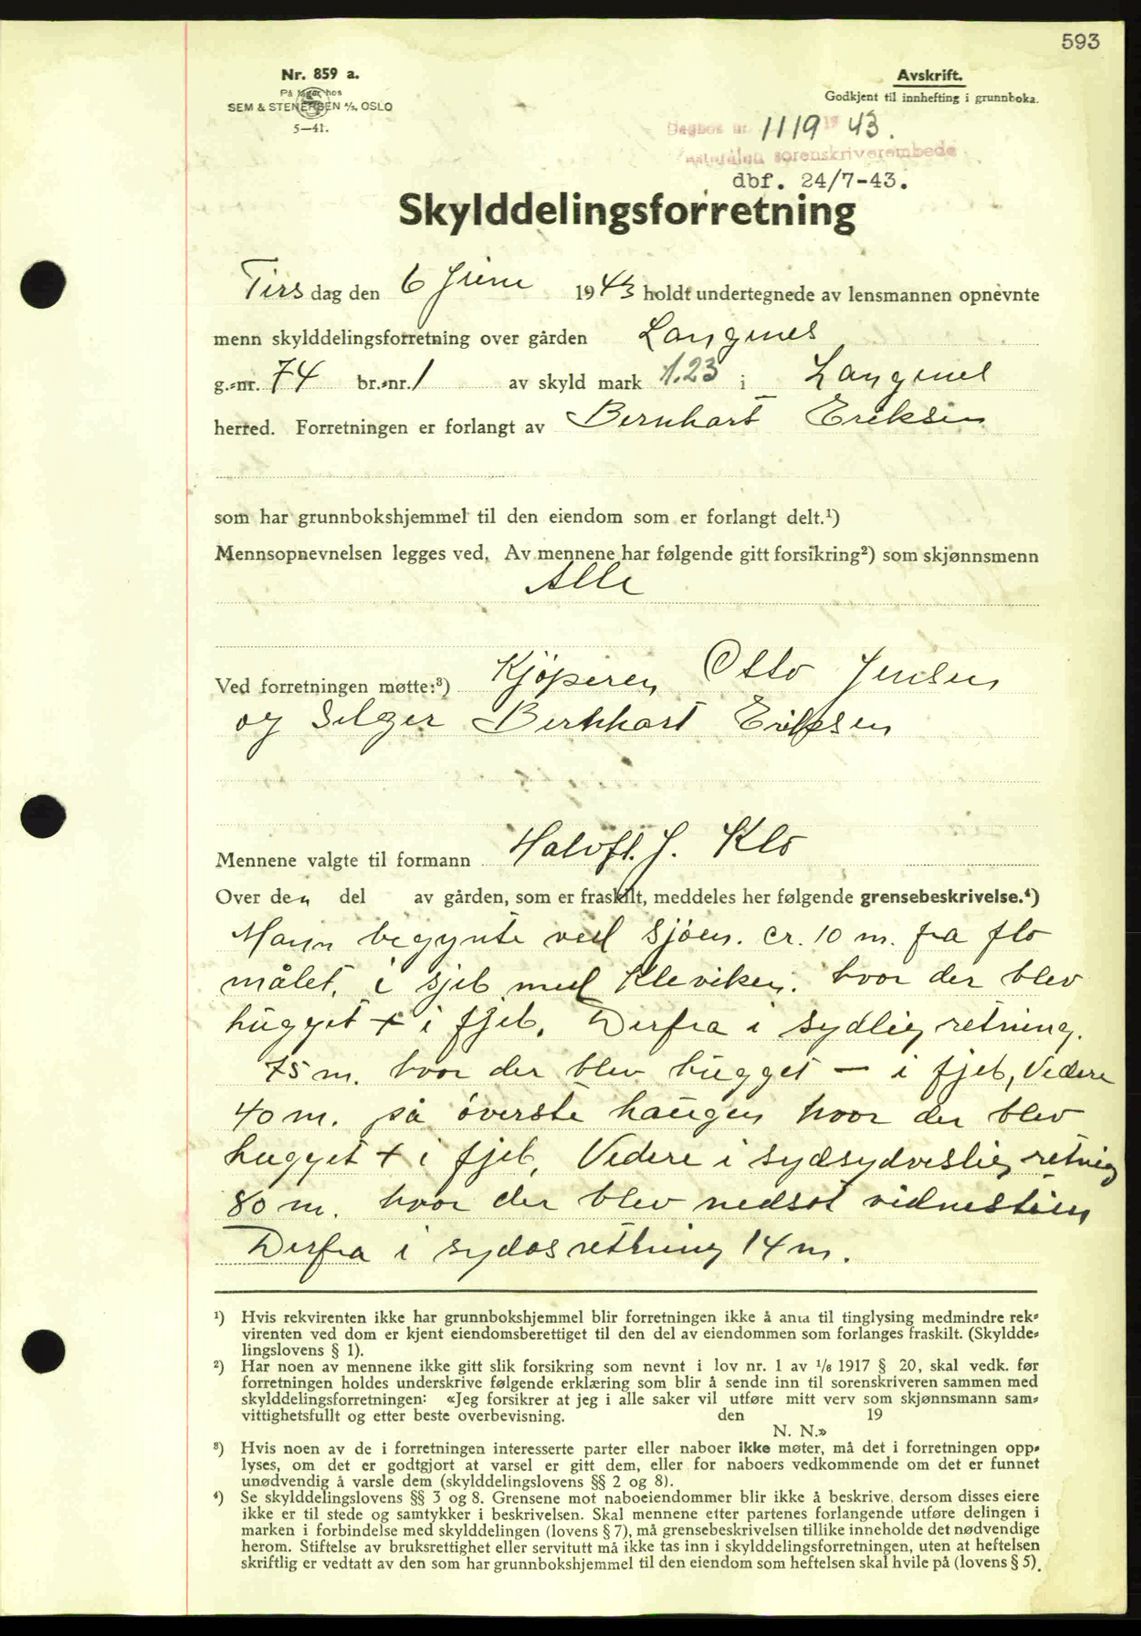 593
Nr. 859 a.
På lager hos
SEM & STENERSEN A/S, OSLO
5—41.
Avskrift.
Godkjent til innhefting i grunnboka.
Dagbok nr. 1119 19 43.
sorenskriverembede
dbf. 24/7-43.
Skylddelingsforretning
Tirs dag den 6 Juni 1943 holdt undertegnede av lensmannen opnevnte
menn skylddelingsforretning over gården Langnes
g.-nr. 74 br.-nr. 1 av skyld mark 1.23 i Langnes
herred. Forretningen er forlangt av Bernhart Eriksen
som har grunnbokshjemmel til den eiendom som er forlangt delt.¹)
Mennsopnevnelsen legges ved. Av mennene har følgende gitt forsikring²) som skjønnsmenn
Alle
Ved forretningen møtte:³) Kjöperen Otto Jensen
og Selger Bernhart Eriksen
Mennene valgte til formann Halvft. J. Klo
Over den del av gården, som er fraskilt, meddeles her følgende grensebeskrivelse.⁴)
Mann begynte ved sjöen. cr. 10 m. fra flo
målet, i sjeb med Kleviken. hvor der blev
hugget + i fjeb. Derfra i sydlig retning.
75 m. hvor der blev hugget — i fjeb, Videre
40 m. på överste haugen hvor der blev
hugget + i fjeb, Videre i sydsydvestlig retnig
80 m. hvor der blev nedsat vidnestein
Derfra i sydos rettning 14 m.
¹) Hvis rekvirenten ikke har grunnbokshjemmel blir forretningen ikke å anta til tinglysing medmindre rek-
virenten ved dom er kjent eiendomsberettiget til den del av eiendommen som forlanges fraskilt. (Skyldde-
lingslovens § 1).
²) Har noen av mennene ikke gitt slik forsikring som nevnt i lov nr. 1 av ¹/₆ 1917 § 20, skal vedk. før
forretningen holdes underskrive følgende erklæring som blir å sende inn til sorenskriveren sammen med
skylddelingsforretningen: «Jeg forsikrer at jeg i alle saker vil utføre mitt verv som skjønnsmann sam-
vittighetsfullt og etter beste overbevisning. den 19
N. N.»
³) Hvis noen av de i forretningen interesserte parter eller naboer ikke møter, må det i forretningen opp-
lyses, om det er godtgjort at varsel er gitt dem, eller for naboers vedkommende om det er funnet
unødvendig å varsle dem (skylddelingslovens §§ 2 og 8).
⁴) Se skylddelingslovens §§ 3 og 8. Grensene mot naboeiendommer blir ikke å beskrive, dersom disses eiere
ikke er til stede og samtykker i beskrivelsen. Skal mennene etter partenes forlangende utføre delingen i
marken i forbindelse med skylddelingen (lovens § 7), må grensebeskrivelsen tillike inneholde det nødvendige
herom. Stiftelse av bruksrettighet eller servitutt må ikke tas inn i skylddelingsforretningen, uten at heftelsen
skriftlig er vedtatt av den som har grunnbokshjemmel til den eiendom som heftelsen skal hvile på (lovens § 5).